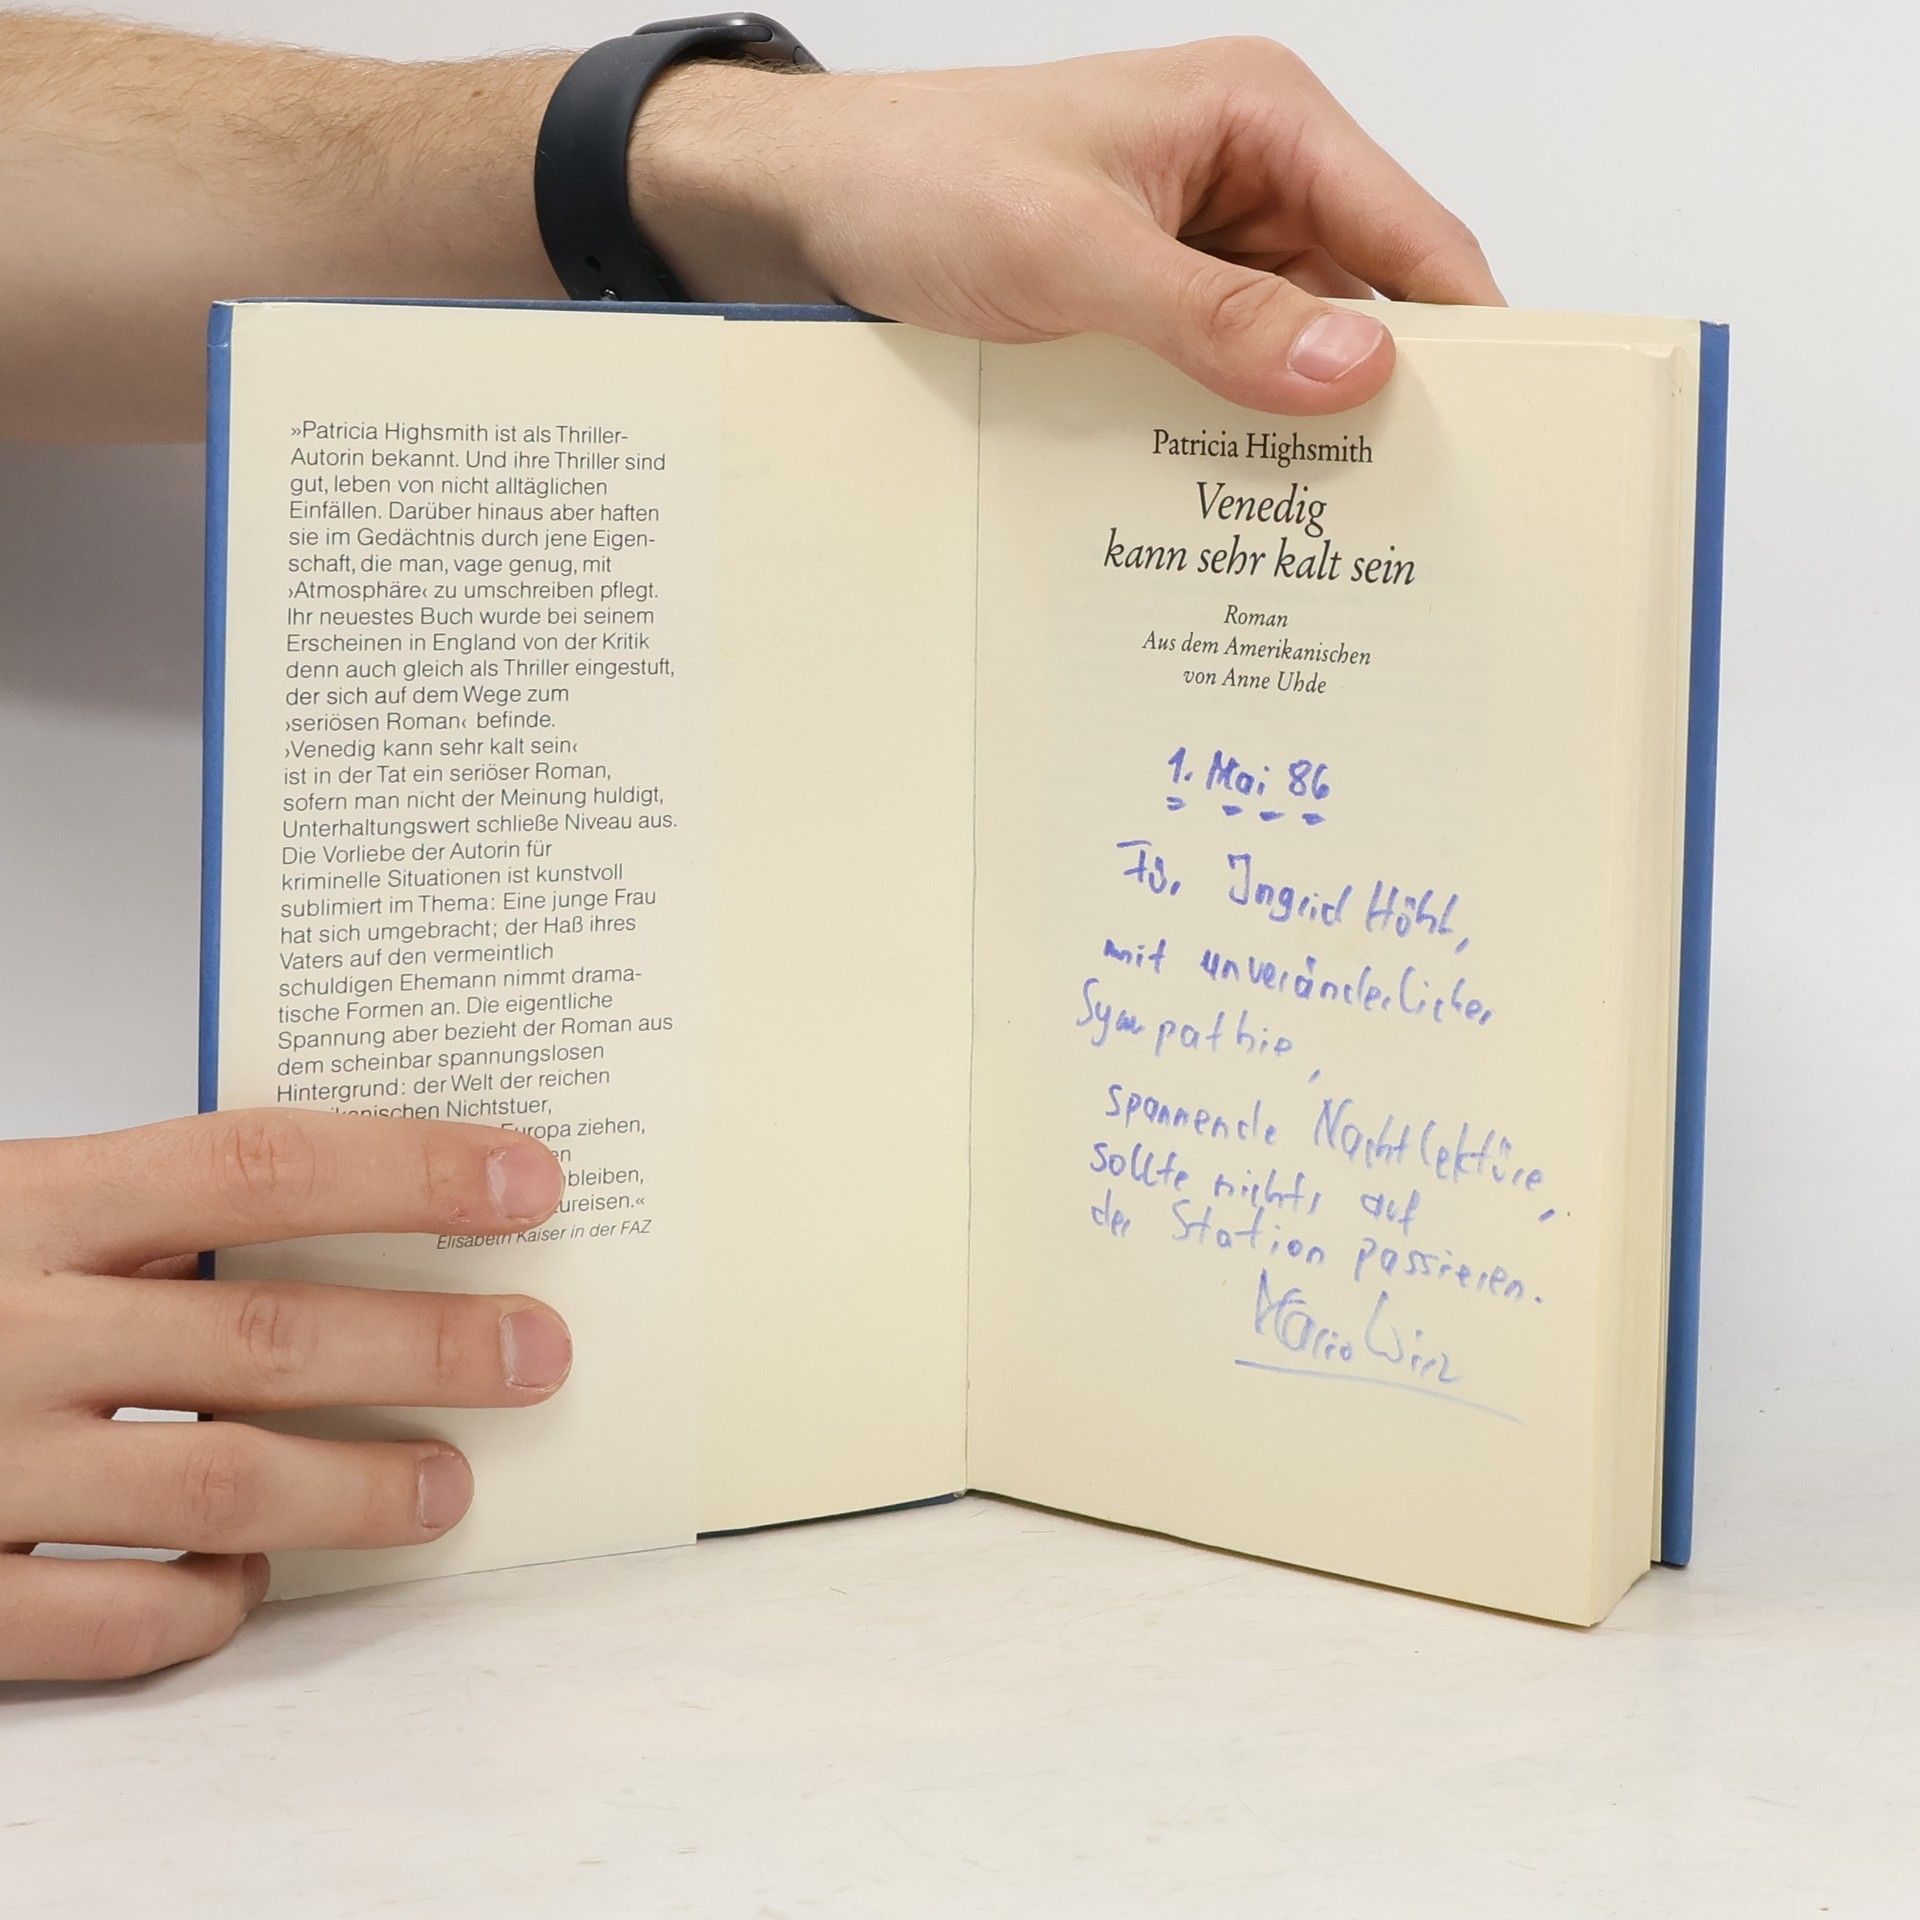 »Patricia Highsmith ist als Thriller-
Autorin bekannt. Und ihre Thriller sind
gut, leben von nicht alltäglichen
Einfällen. Darüber hinaus aber haften
sie im Gedächtnis durch jene Eigen-
schaft, die man, vage genug, mit
›Atmosphäre‹ zu umschreiben pflegt.
Ihr neuestes Buch wurde bei seinem
Erscheinen in England von der Kritik
denn auch gleich als Thriller eingestuft,
der sich auf dem Wege zum
›seriösen Roman‹ befinde.
›Venedig kann sehr kalt sein‹
ist in der Tat ein seriöser Roman,
sofern man nicht der Meinung huldigt,
Unterhaltungswert schließe Niveau aus.
Die Vorliebe der Autorin für
kriminelle Situationen ist kunstvoll
sublimiert im Thema: Eine junge Frau
hat sich umgebracht; der Haß ihres
Vaters auf den vermeintlich
schuldigen Ehemann nimmt drama-
tische Formen an. Die eigentliche
Spannung aber bezieht der Roman aus
dem scheinbar spannungslosen
Hintergrund: der Welt der reichen
Nichtstuer,
Europa ziehen,
bleiben,
Elisabeth Kaiser in der FAZ
Patricia Highsmith
Venedig
kann sehr kalt sein
Roman
Aus dem Amerikanischen
von Anne Uhde
1. Mai 86
Ingrid Höhl,
mit unveränderlicher
Sympathie,
spannende Nachtlektüre,
sollte nichts auf
der Station passieren.
Mario Wirz